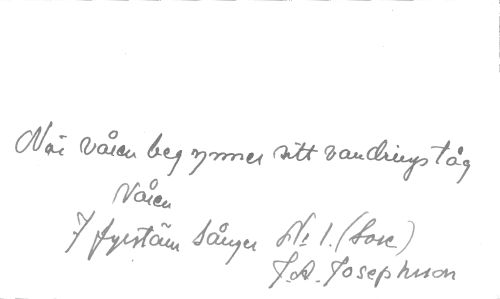 När våren begynner sitt vandringståg
Våren
7 fyrstäm sånger No 1. (Sax)
J.A. Josephson